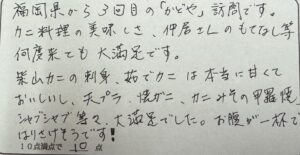 福岡県から3回目の「かどや」訪問です。
カニ料理の美味しさ、仲居さんのもてなし等
何度来ても大満足です。
津山カニの刺身、茹でカニは本当に甘くて
おいしいし、天プラ、焼がに、カニみその甲羅焼、
シャブシャブ等々、大満足でした。お腹が一杯で
はりさけそうです!
10点満点で 10 点